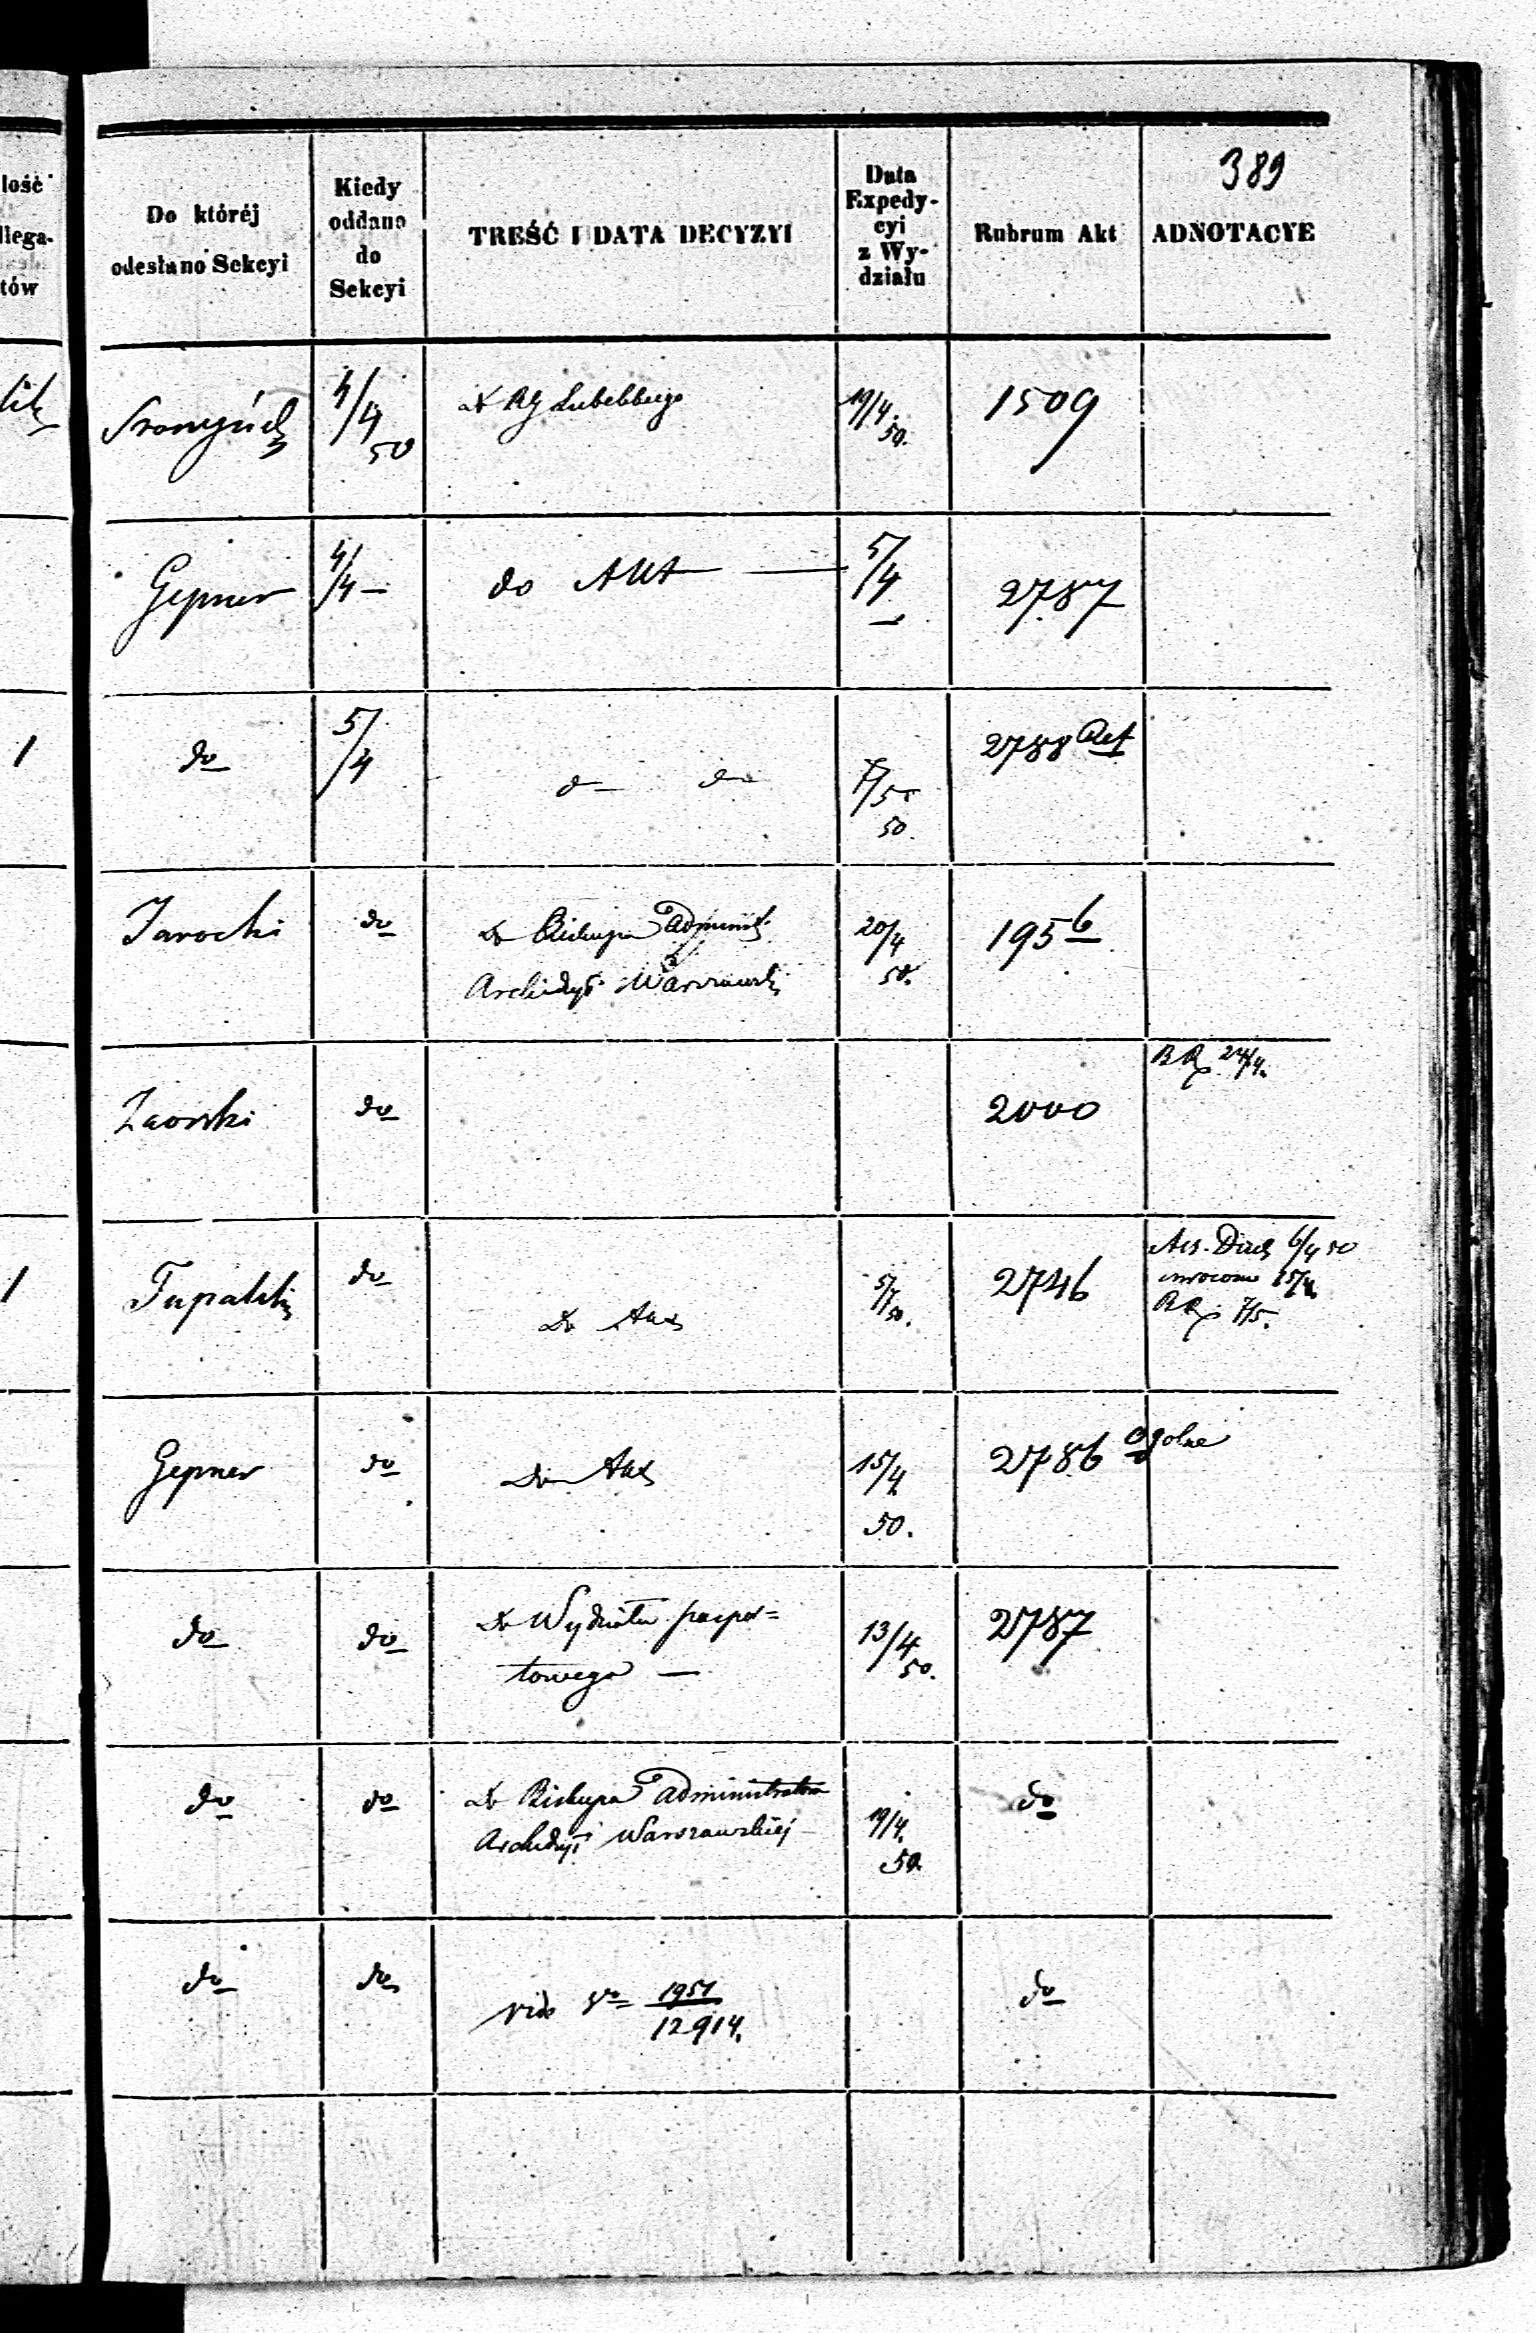 389
lość
llega-
tów
Do któréj
odesłano Sekcyi
Kiedy
oddano
do
Sekcyi
TREŚĆ I DATA DECYZYI
Data
Expedy-
cyi
z Wy-
działu
Rubrum Akt
ADNOTACYE
4/4
50
Lubelskiego
19/4.
50.
1509
Gepner
4/4 —
do Akt —
5/4
—
2787
1
do
5/4
do do
50.
2788
Jarocki
do
Do Biskupa Administ.
Archidye Warszawski
20/4
50.
1956
Zaorski
do
2000
BR 24/4.
1
Tupalski
do
Do Akt
50.
2746
6/4 50
wrócono 15/4
BR 7/5.
Gepner
do
Do Akt
15/4
50.
2786 ogolne
do
do
Do Wydziału paszpor=
towego —
13/4
50.
2787
do
do
Do Biskupa Administratora
Archidye Warszawskiej
19/4.
50
do
do
do
vide
1951
12914.
do